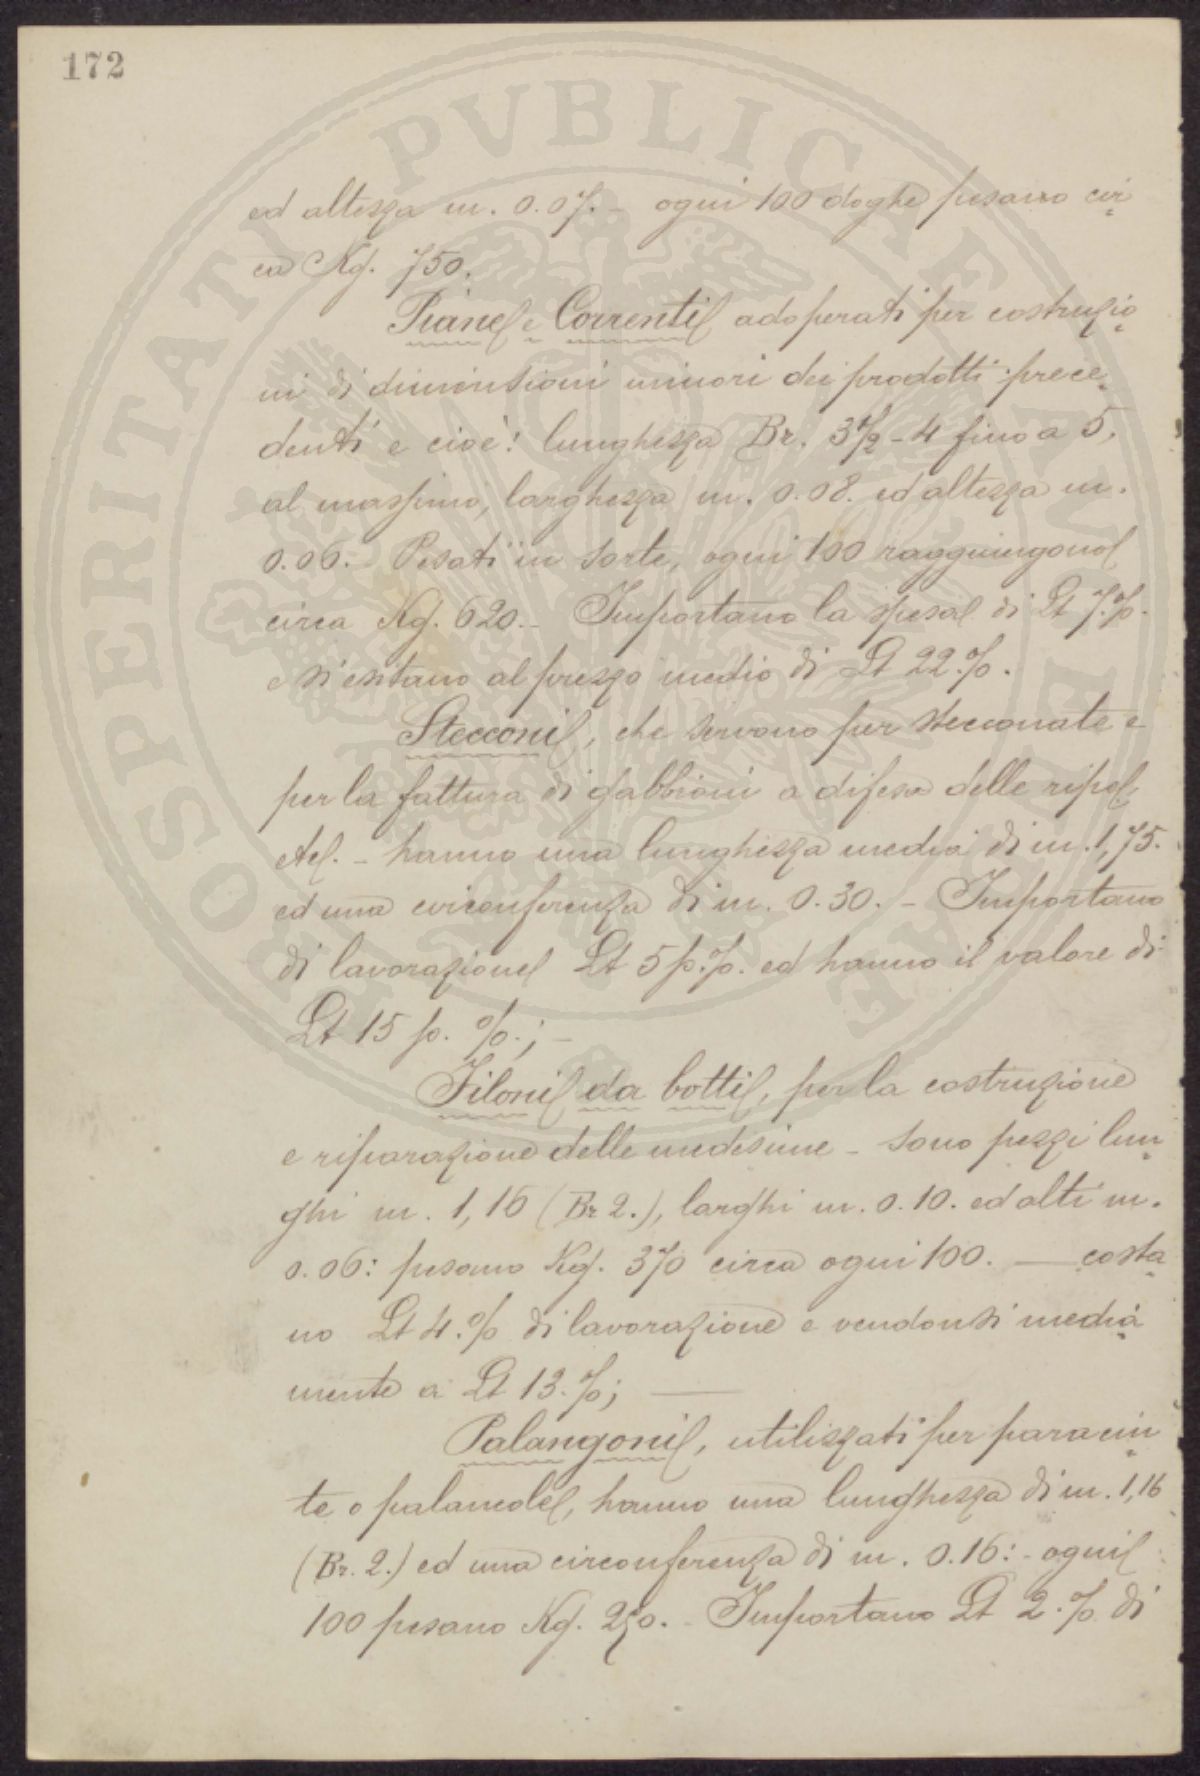 172
PROSPERITATI PVBLICAE AVGENDAE
ed altezza m. 0.07. - ogni 100 doghe pesano cir
ca Kg. 750.
Piane e Correnti adoperati per costruzio
ni di dimensioni minori dei prodotti prece
denti e cioè: lunghezza Br. 3 1/2 - 4 fino a 5,
al massimo, larghezza m. 0.08. ed altezza m.
0.06. - Pesati in sorte, ogni 100 raggiungono
circa Kg. 620. - Importano la spesa di Lt 7.%.
e si esitano al prezzo medio di Lt 22.%.
Stecconi, che servono per stecconate e
per la fattura di gabbioni a difesa delle ripe
etc. - hanno una lunghezza media di m. 1,75.
ed una circonferenza di m. 0.30. - Importano
di lavorazione Lt 5 p.%. ed hanno il valore di
Lt 15 p. %.; -
Filoni da botti, per la costruzione
e riparazione delle medesime - sono pezzi lun
ghi m. 1,16 (Br 2.), larghi m. 0.10. ed alti m.
0.06: pesano Kg. 370 circa ogni 100. — costa
no Lt 4.% di lavorazione e vendonsi media
mente a Lt 13.%; —
Palangoni, utilizzati per paracin
te o palancole, hanno una lunghezza di m. 1,16
(Br. 2.) ed una circonferenza di m. 0.16: - ogni
100 pesano Kg. 250. - Importano Lt 2.% di